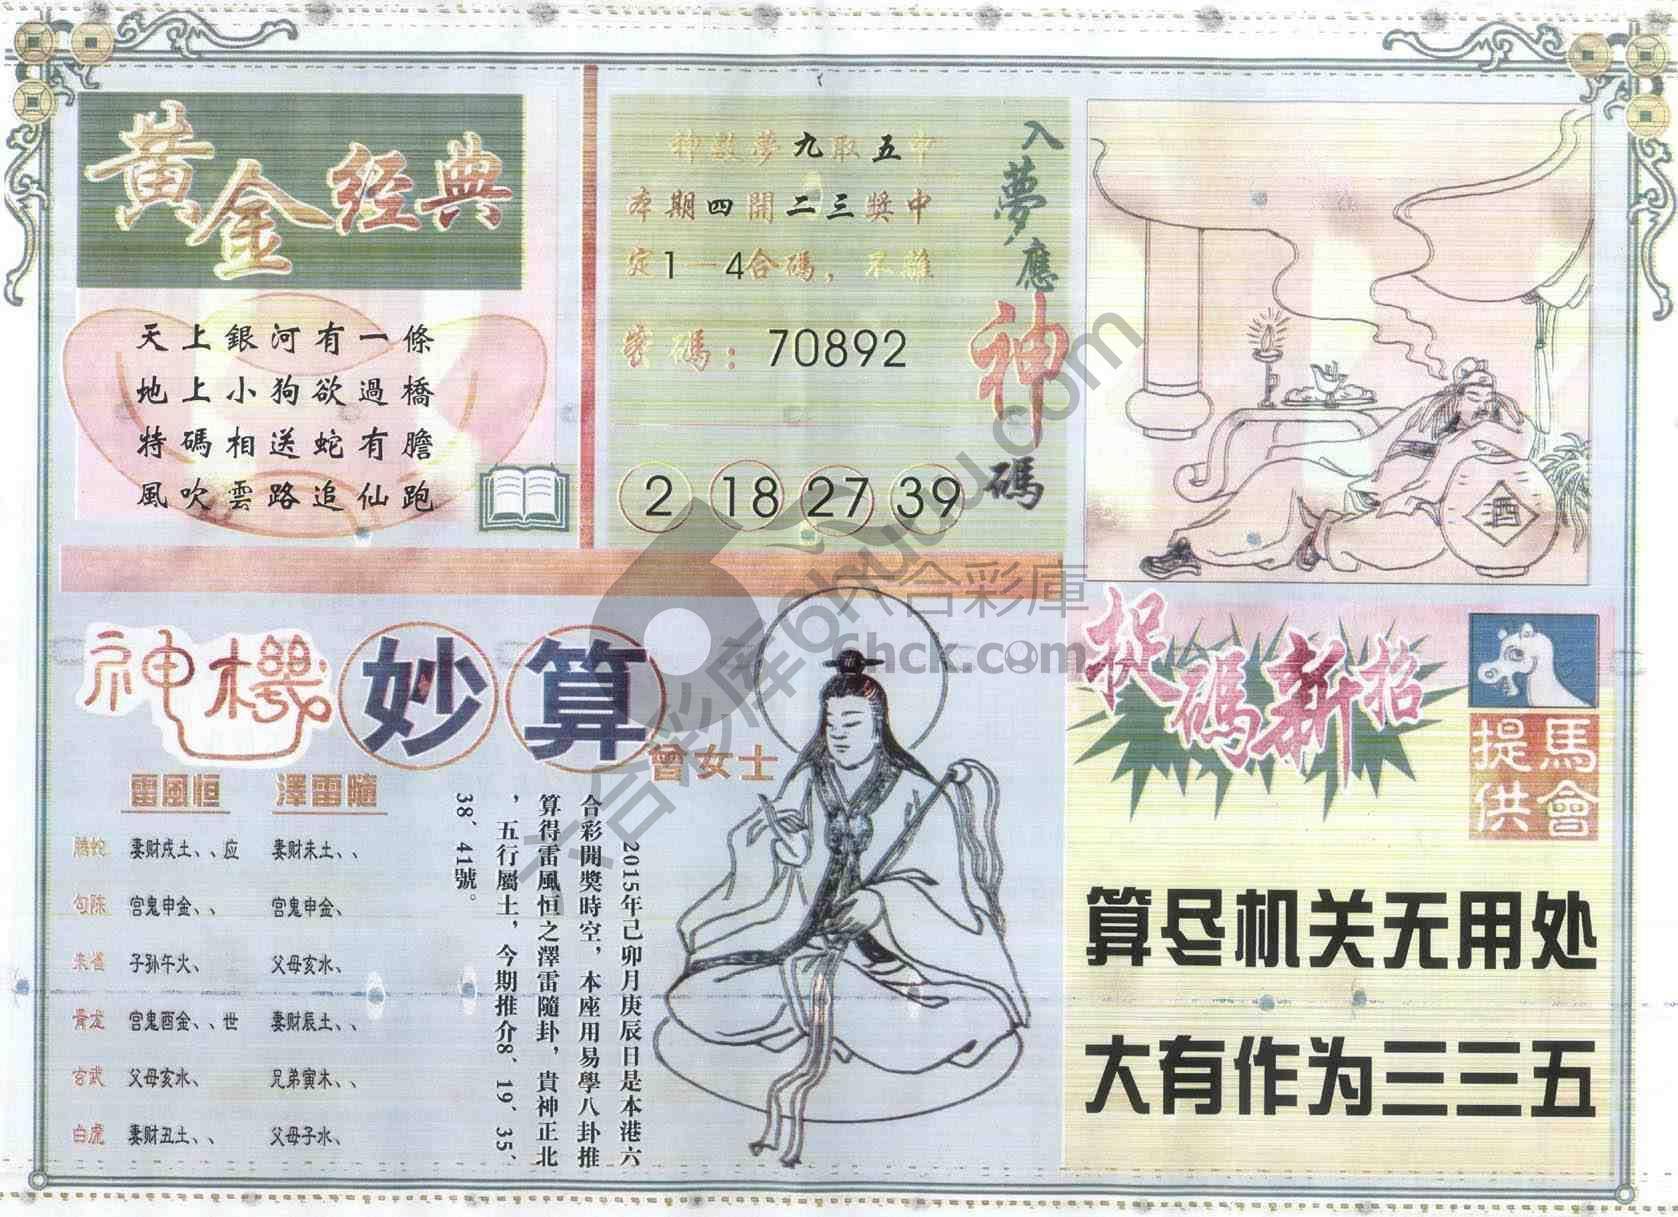 黃金经典
天上銀河有一條
地上小狗欲過橋
特碼相送蛇有膽
風吹雲路追仙跑
神數夢九取五中
本期四開二三獎中
定1一4合碼，不離
密碼：70892
2 18 27 39
入夢應神碼
酒
神機妙算
曾女士
雷風恒 澤雷隨
腾蛇 妻财戌土、、应 妻财未土、、
勾陈 官鬼申金、、 官鬼申金、
朱雀 子孙午火、 父母亥水、
青龙 官鬼酉金、、世 妻财辰土、、
玄武 父母亥水、 兄弟寅木、、
白虎 妻财丑土、、 父母子水、
2015年己卯月庚辰日是本港六
合彩開獎時空，本座用易學八卦推
算得雷風恒之澤雷隨卦，貴神正北
，五行屬土，今期推介8、19、35、
38、41號。
捉碼新招
馬會提供
算尽机关无用处
大有作为三三五
六合彩庫
6hck.com
六合彩库